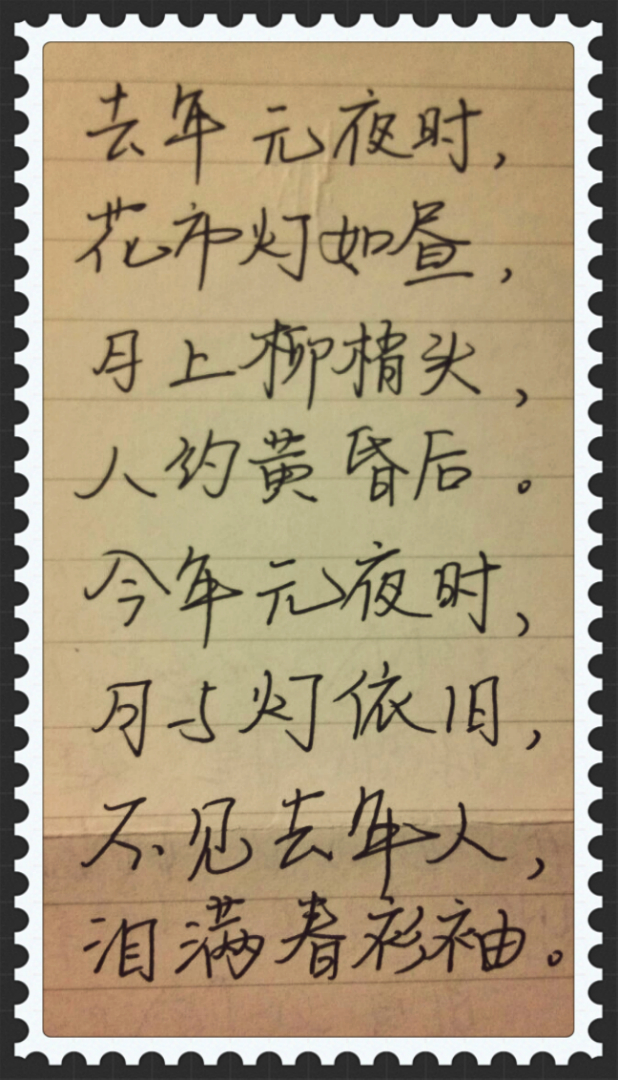 去年元夜时，
花市灯如昼，
月上柳梢头，
人约黄昏后。
今年元夜时，
月与灯依旧，
不见去年人，
泪满春衫袖。